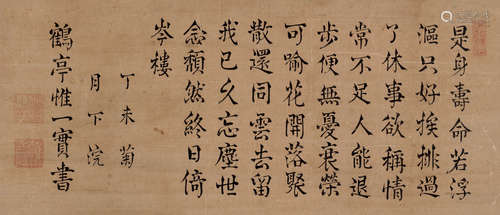 是身壽命若浮
漚只好挨排過
了休事欲稱情
常不足人能退
步便無憂衰榮
可喻花開落聚
散還同雲去留
我已久忘塵世
念頹然終日倚
岑樓
丁未菊
月下浣
鶴亭惟一實書